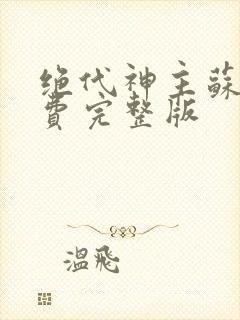 绝代神主蘇
費完整版
溫飛